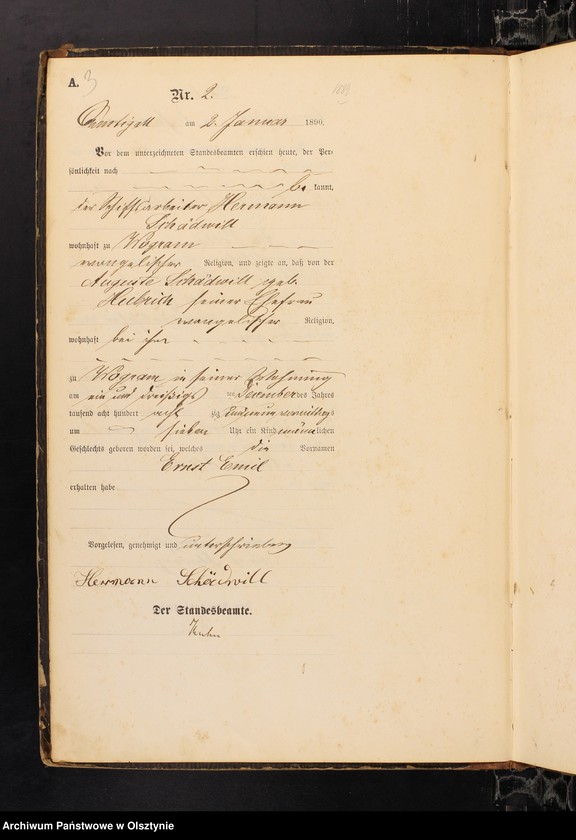 A. 3
Nr. 2.
am 2. Januar 1890.
Vor dem unterzeichneten Standesbeamten erschien heute, der Per-
sönlichkeit nach
be kannt,
der Schiffsarbeiter Hermann
Schädwill
wohnhaft zu Wogram
evangelischer Religion, und zeigte an, daß von der
Auguste Schädwill geb.
Hubrich seiner Ehefrau
evangelischer Religion,
wohnhaft bei ihm
zu Wogram in seiner Wohnung
am ein und dreißigst en Dezember des Jahres
tausend acht hundert acht zig neun vormittags
um sieben Uhr ein Kind männlichen
Geschlechts geboren worden sei, welches die Vornamen
Ernst Emil
erhalten habe.
Vorgelesen, genehmigt und unterschrieben
Herrmann Schädwill
Der Standesbeamte.
Archiwum Państwowe w Olsztynie